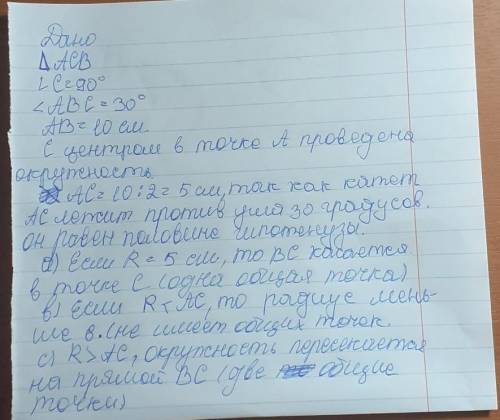 Дано
Δ АСВ
∠C=90°
∠ABC=30°
AB=10 см.
С центром в точке А проведена
окружность
АС=10:2=5см, так как катет
АС лежит против угла 30 градусов.
он равен половине гипотенузы.
а) Если R=5 см, то ВС касается
в точке С (одна общая точка)
в) Если R<AC, то радиус мень-
ше в. (не имеет общих точек.
с) R>AC, окружность пересекается
на прямой ВС (две общие
точки)